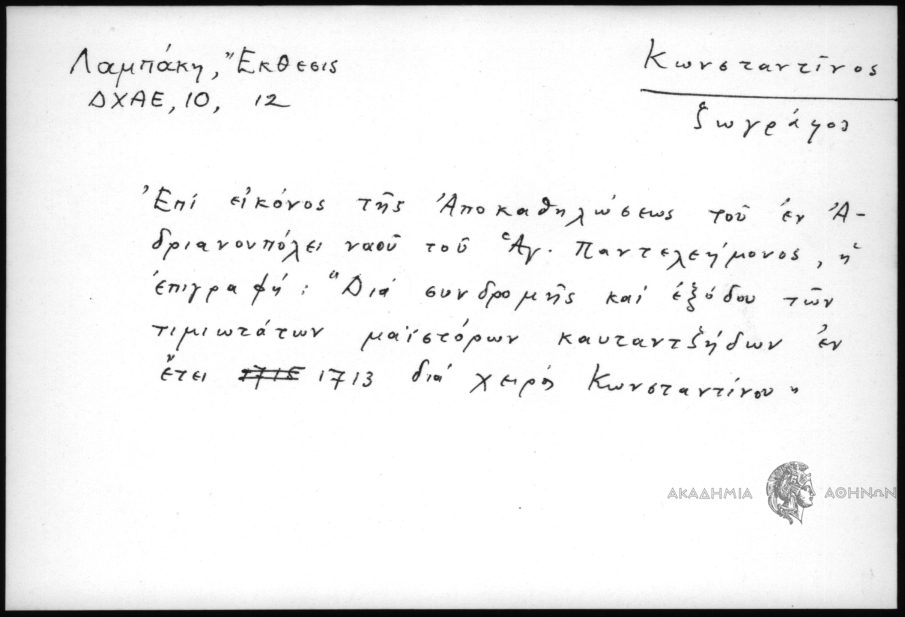 Λαμπάκη, Ἔκθεσις
ΔΧΑΕ, 10, 12
Κωνσταντῖνος
ζωγράφος
Ἐπί εἰκόνος τῆς Ἀποκαθηλώσεως τοῦ ἐν Ἀ-
δριανουπόλει ναοῦ τοῦ Ἁγ. Παντελεήμονος, ἡ
ἐπιγραφή: "Διά συνδρομῆς καί ἐξόδου τῶν
τιμιωτάτων μαϊστόρων καυταντζήδων ἐν
ἔτει 1713 διά χειρός Κωνσταντίνου"
ΑΚΑΔΗΜΙΑ ΑΘΗΝΩΝ